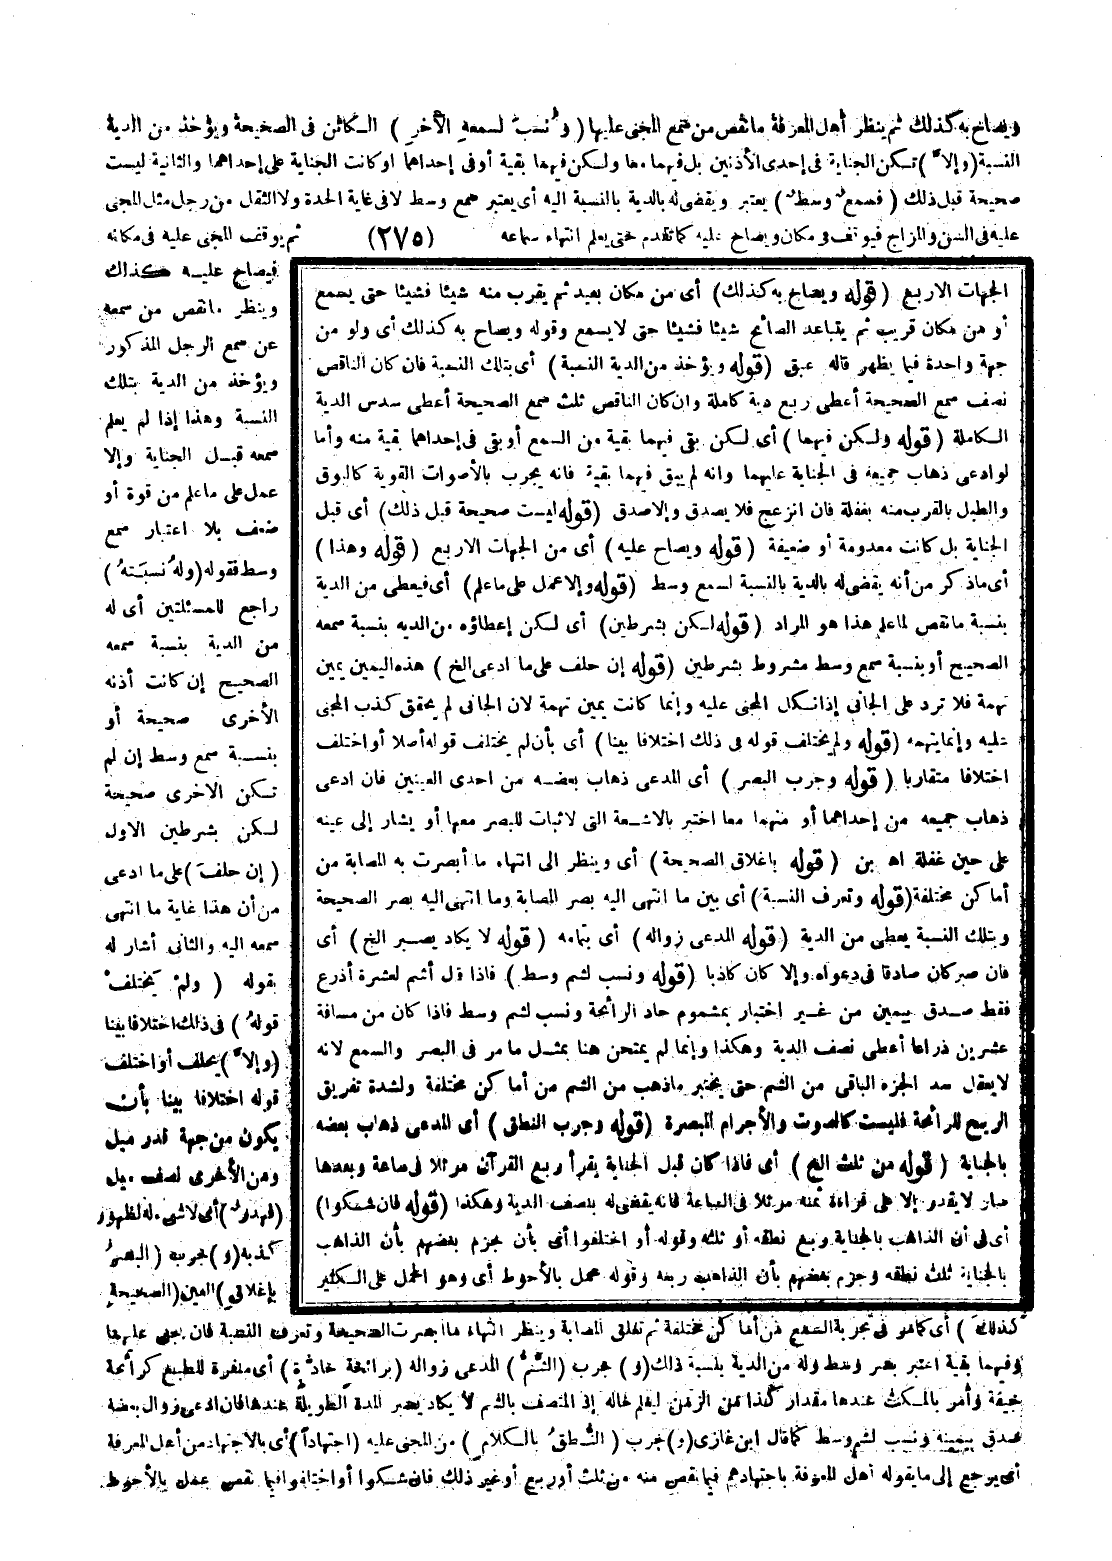 ويصاح به كذلك ثم ينظر أهل المعرفة ما نقص من سمع المجنى عليها (ونسب لسمعه الأخر) الكائن فى الصحيحة ويؤخذ من الدية
النسبة (وإلا) تكن الجناية فى إحدى الأذنين بل فيهما معا ولكن فيهما بقية أوفى إحداهما اوكانت الجناية على إحداهما والثانية ليست
صحيحة قبل ذلك (فسمع وسط) يعتبر ويقضى له بالدية بالنسبة اليه أى يعتبر سمع وسط لا فى غاية الحدة ولا الثقل من رجل مثل المجنى
عليه فى السن والمزاج فيوقف فى مكان ويصاح عليه كما تقدم حتى يعلم انتهاء سماعه (٢٧٥) ثم يوقف المجنى عليه فى مكانه
فيصاح عليه كذلك
وينظر ما نقص من سمعه
عن سمع الرجل المذكور
ويؤخذ من الدية بتلك
النسبة وهذا إذا لم يعلم
سمعه قبل الجناية وإلا
عمل على ماعلم من قوة أو
ضعف بلا اعتبار سمع
وسط فقوله (وله نسبته)
راجع للمسئلتين أى له
من الدية بنسبة سمعه
الصحيح إن كانت أذنه
الأخرى صحيحة أو
بنسبة سمع وسط إن لم
تكن الاخرى صحيحة
لكن بشرطين الاول
(إن حلف) على ما ادعى
من أن هذا غاية ما انتهى
سمعه اليه والثانى أشار له
بقوله (ولم يختلف
قوله) فى ذلك اختلافا بينا
(وإلا) يحلف أو اختلف
قوله اختلافا بينا بأن
يكون من جهة قدر ميل
ومن الأخرى نصف ميل
(فهدر) أى لاشىء له لظهور
كذبه (و) جرب (البصر
بإغلاق) العين (الصحيحة
الجهات الاربع (قوله ويصاح به كذلك) أى من مكان بعيد ثم يقرب منه شيئا فشيئا حتى يسمع
أو من مكان قريب ثم يتباعد الصائح شيئا فشيئا حتى لا يسمع وقوله ويصاح به كذلك أى ولو من
جهة واحدة فيما يظهر قاله عبق (قوله ويؤخذ من الدية النسبة) أى بتلك النسبة فان كان الناقص
نصف سمع الصحيحة أعطى ربع دية كاملة وان كان الناقص ثلث سمع الصحيحة أعطى سدس الدية
الكاملة (قوله ولكن فيهما) أى لكن بقى فيهما بقية من السمع أوبقى فى إحداهما بقية منه وأما
لو ادعى ذهاب جميعه فى الجناية عليهما وانه لم يبق فيهما بقية فانه يجرب بالأصوات القوية كالبوق
والطبل بالقرب منه بغفلة فان انزعج فلا يصدق وإلا صدق (قوله ليست صحيحة قبل ذلك) أى قبل
الجناية بل كانت معدومة أو ضعيفة (قوله ويصاح عليه) أى من الجهات الاربع (قوله وهذا)
أى ماذكر من أنه يقضى له بالدية بالنسبة لسمع وسط (قوله وإلا عمل على ماعلم) أى فيعطى من الدية
بنسبة ما نقص لماعلم هذا هو المراد (قوله لكن بشرطين) أى لكن إعطاؤه من الديه بنسبة سمعه
الصحيح أو بنسبة سمع وسط مشروط بشرطين (قوله إن حلف على ما ادعى الخ) هذه اليمين يمين
تهمة فلا ترد على الجانى إذا نكل المجنى عليه وإنما كانت يمين تهمة لان الجانى لم يحقق كذب المجنى
عليه وإنما يتهمه (قوله ولم يختلف قوله فى ذلك اختلافا بينا) أى بأن لم يختلف قوله أصلا أو اختلف
اختلافا متقاربا (قوله وجرب البصر) أى المدعى ذهاب بعضه من احدى العينين فان ادعى
ذهاب جميعه من إحداهما أو منهما معا اختبر بالاشعة التى لا ثبات للبصر معها أو يشار إلى عينه
على حين غفلة اه بن (قوله باغلاق الصحيحة) أى وينظر الى انتهاء ما أبصرت به المصابة من
أماكن مختلفة (قوله وتعرف النسبة) أى بين ما انتهى اليه بصر المصابة وما انتهى اليه بصر الصحيحة
وبتلك النسبة يعطى من الدية (قوله المدعى زواله) أى بتمامه (قوله لا يكاد يصبر الخ) أى
فان صبر كان صادقا فى دعواه وإلا كان كاذبا (قوله ونسب لشم وسط) فاذا قال أشم لعشرة أذرع
فقط صدق بيمين من غير اختبار بمشموم حاد الرائحة ونسب لشم وسط فاذا كان من مسافة
عشرين ذراعا أعطى نصف الدية وهكذا وإنما لم يمتحن هنا بمثل ما مر فى البصر والسمع لانه
لا يعقل سد الجزء الباقى من الشم حتى يختبر ماذهب من الشم من أماكن مختلفة ولشدة تفريق
الريح للرائحة فليست كالصوت والأجرام المبصرة (قوله وجرب النطق) أى المدعى ذهاب بعضه
بالجناية (قوله من ثلث الخ) أى فاذا كان قبل الجناية يقرأ ربع القرآن مرتلا فى ساعة وبعدها
صار لا يقدر إلا على قراءة ثمنه مرتلا فى الساعة فانه يقضى له بنصف الدية وهكذا (قوله فان شكوا)
أى فى أن الذاهب بالجناية ربع نطقه أو ثلثه وقوله أو اختلفوا أى بأن يجزم بعضهم بأن الذاهب
بالجناية ثلث نطقه وجزم بعضهم بأن الذاهب ربعه وقوله عمل بالأحوط أى وهو الحمل على الكثير
كذلك) أى كما هو فى تجربة السمع من أماكن مختلفة ثم تغلق المصابة وينظر انتهاء ما أبصرت الصحيحة وتعرف النسبة فان جنى عليهما
وفيهما بقية اعتبر بصر وسط وله من الدية بنسبة ذلك (و) جرب (الشم) المدعى زواله (برائحة حادة) أى منفرة للطبع كرائحة
جيفة وأمر بالمكث عندها مقدار كذا من الزمن ليعلم حاله إذ المتصف بالشم لا يكاد يصبر المدة الطويلة عندها فان ادعى زوال بعضه
صدق بيمينه ونسب لشم وسط كما قال ابن غازى (و) جرب (النطق بالكلام) من المجنى عليه (اجتهادا) أى بالاجتهاد من أهل المعرفة
أى يرجع إلى ما يقوله أهل المعرفة باجتهادهم فيما نقص منه من ثلث أو ربع أو غير ذلك فان شكوا أو اختلفوا فيما نقص عمل بالأحوط